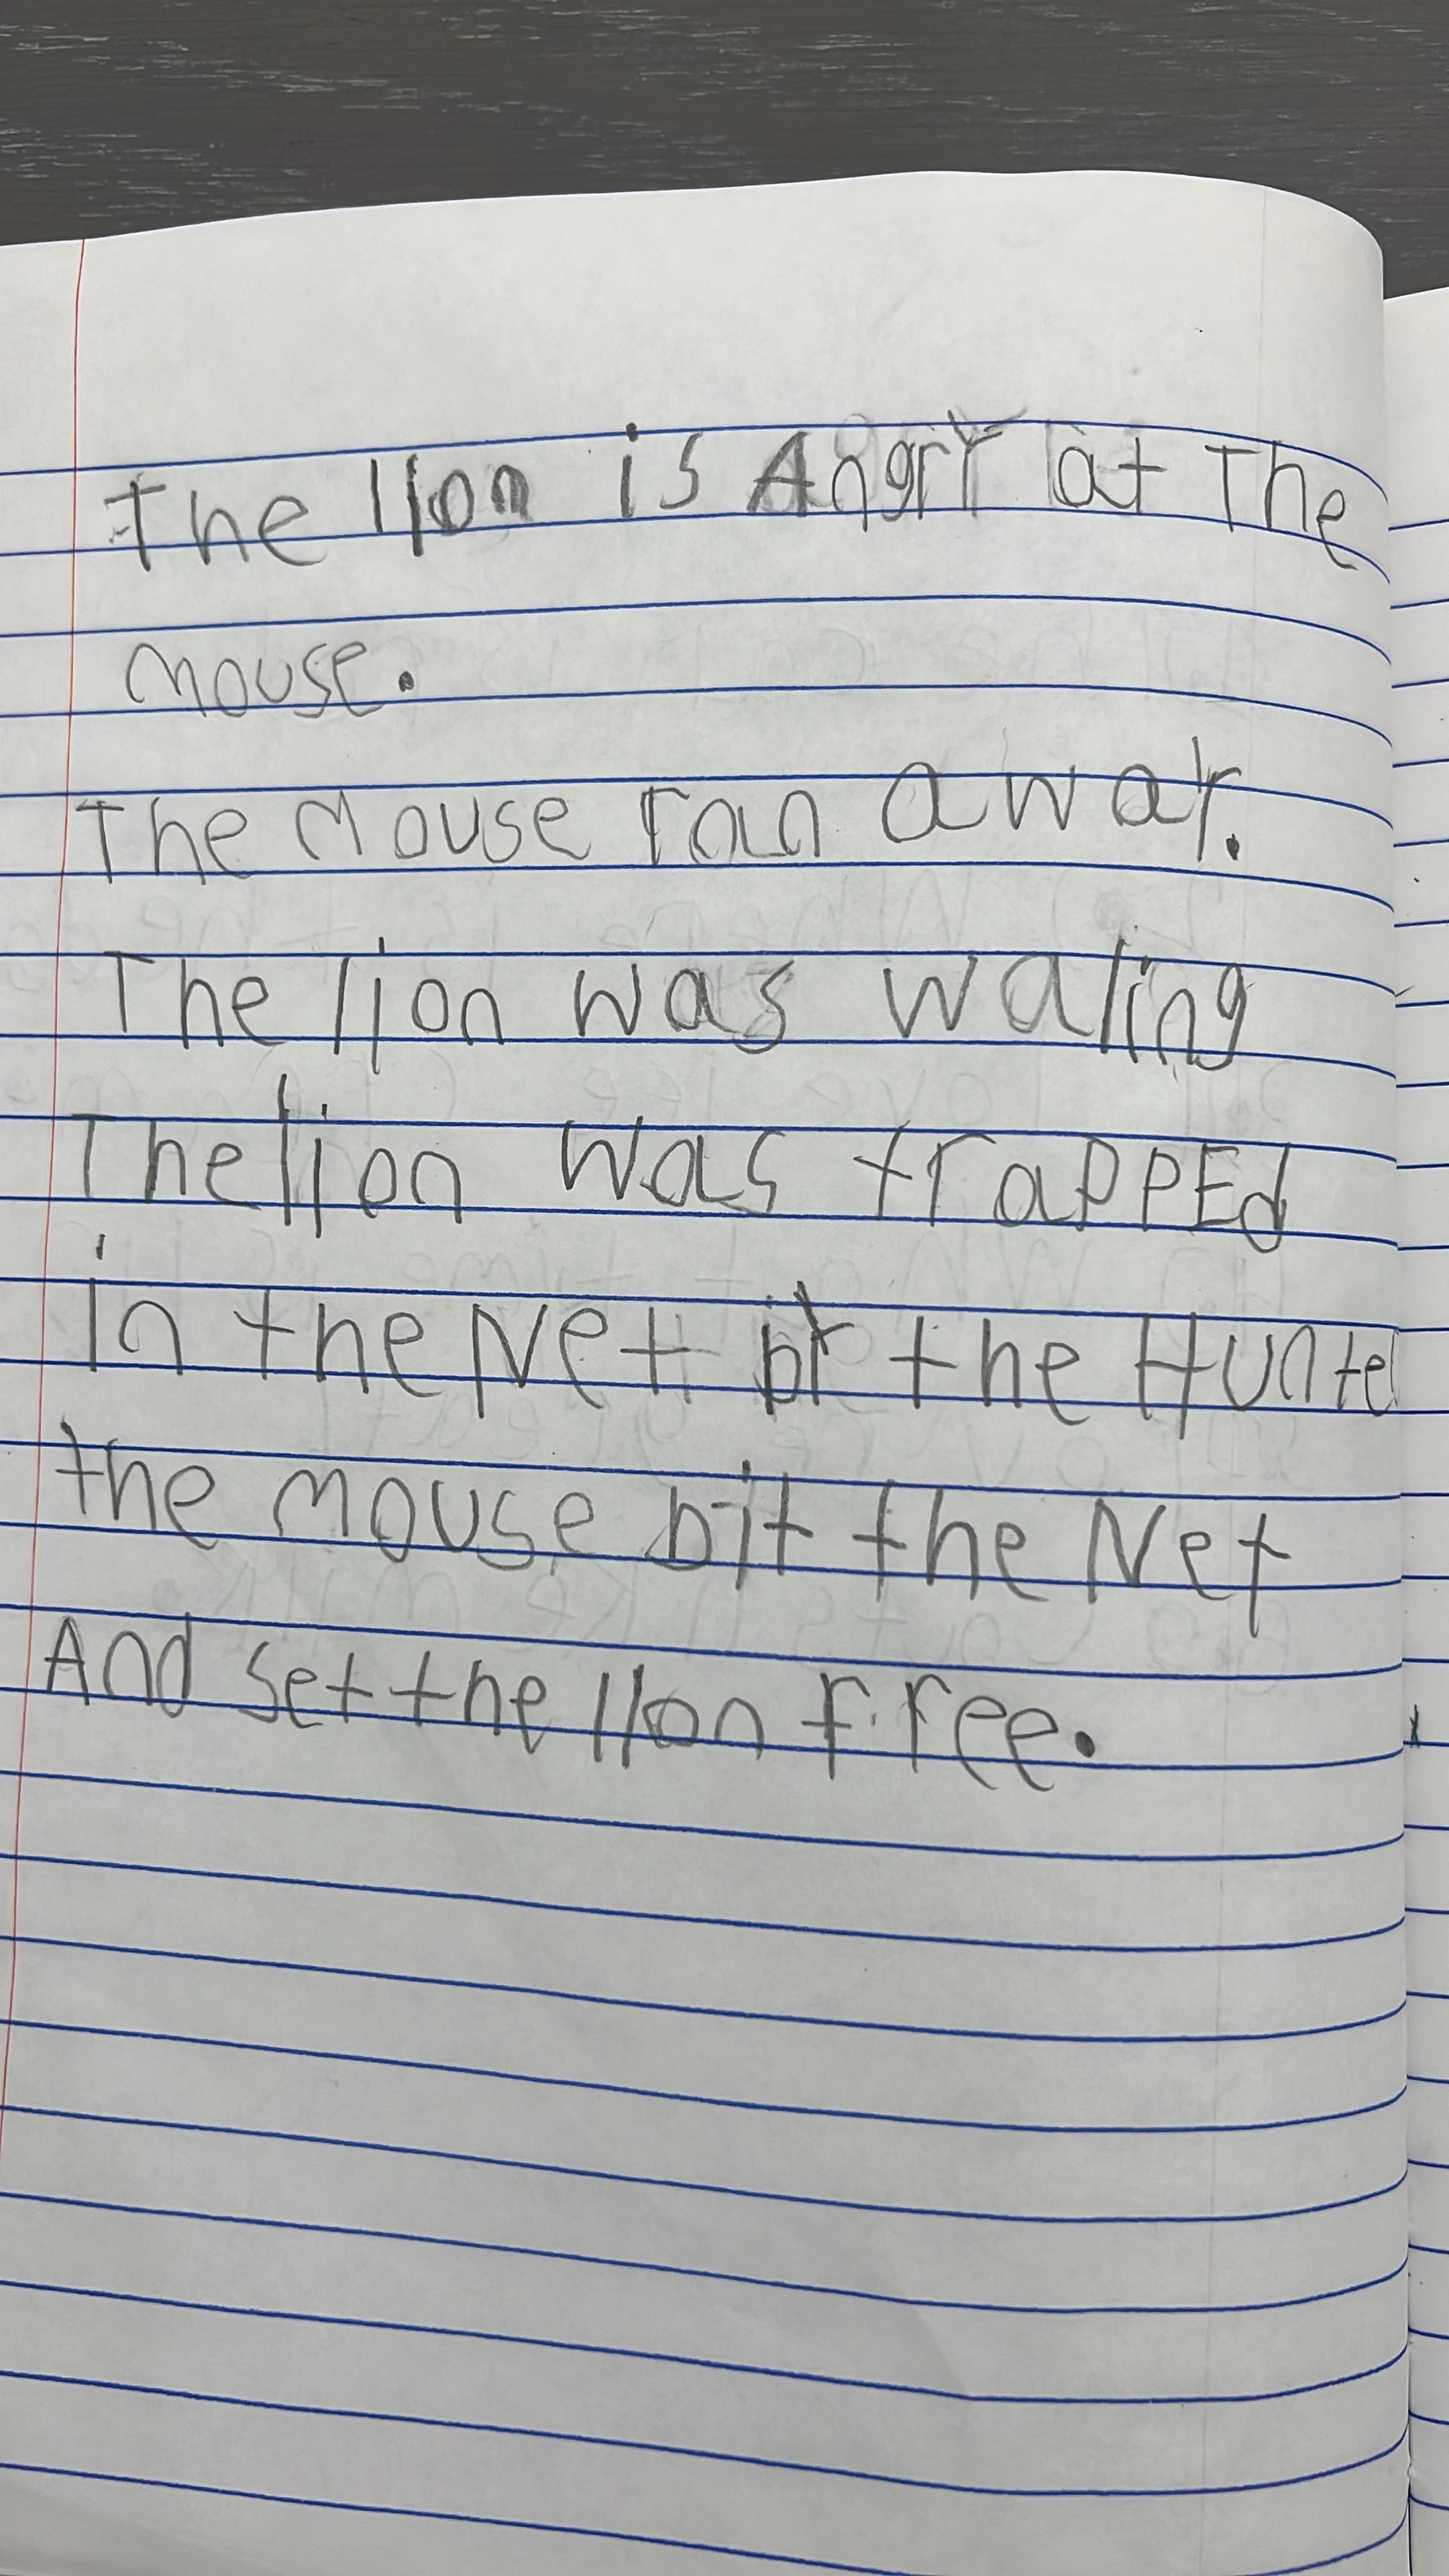 The lion is Angry at The
mouse.
The Mouse ran away.
The lion was waling
The lion was trappEd
in the Net by the Hunte
the mouse bit the Net
And set the lion free.